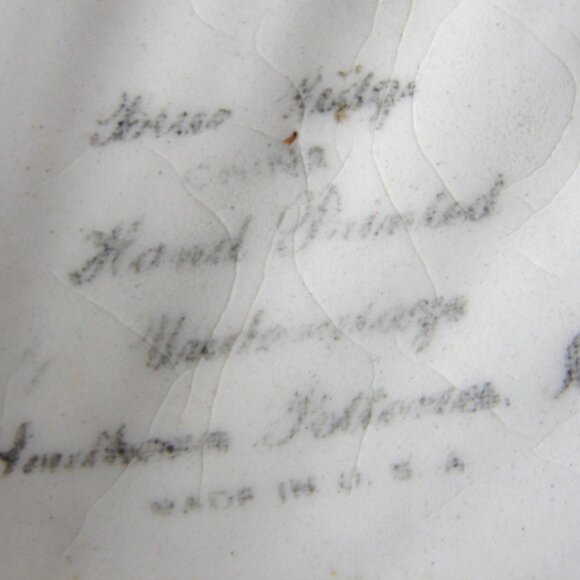 Blue Ridge
CHINA
Hand Painted
Underglaze
Southern Potteries,
MADE IN U. S. A